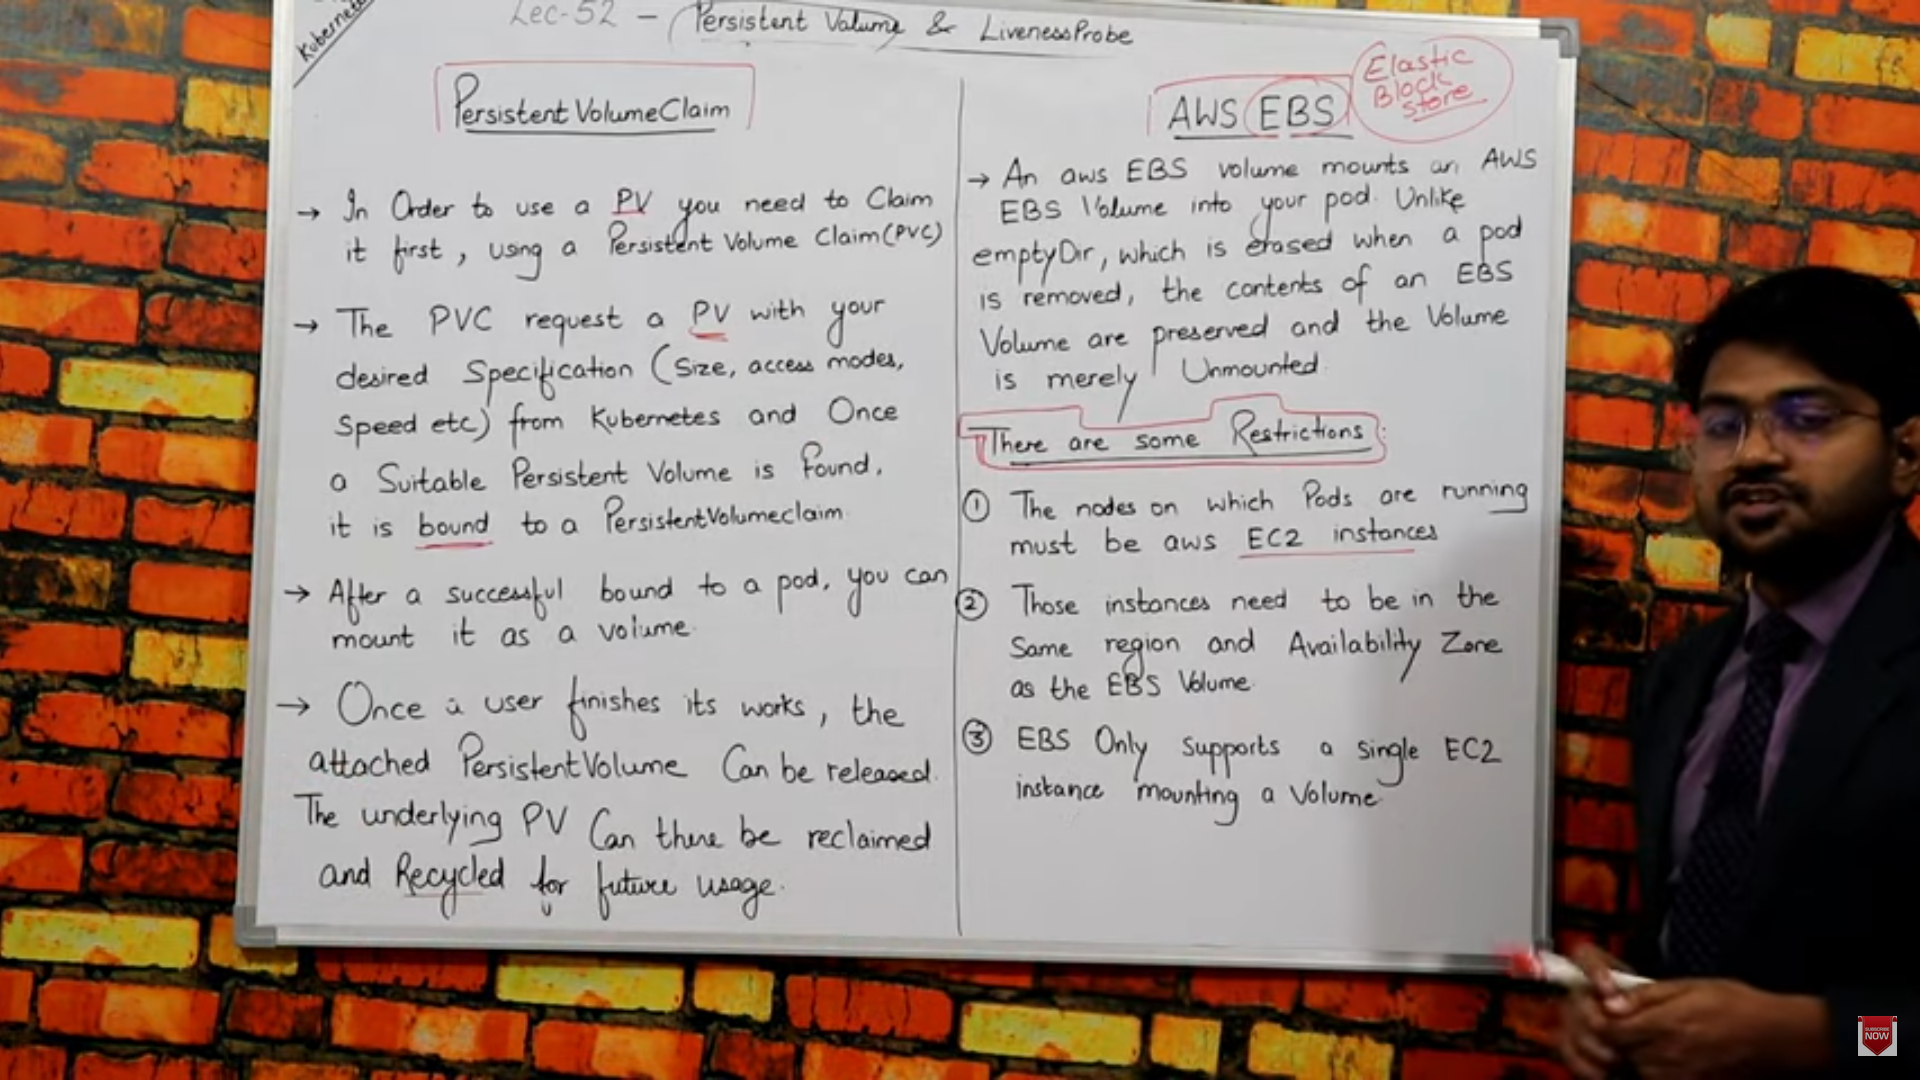 Kubernetes
Lec-52 - Persistent Volume & LivenessProbe
PersistentVolumeClaim
→ In Order to use a PV you need to Claim
it first, using a Persistent Volume Claim(PVC)
→ The PVC request a PV with your
desired Specification (Size, access modes,
Speed etc) from Kubernetes and Once
a Suitable Persistent Volume is found,
it is bound to a PersistentVolumeclaim
→ After a successful bound to a pod, you can
mount it as a volume.
→ Once a user finishes its works, the
attached PersistentVolume Can be released.
The underlying PV Can then be reclaimed
and Recycled for future usage.
AWS EBS
Elastic
Block
Store
→ An aws EBS volume mounts an AWS
EBS Volume into your pod. Unlike
emptyDir, which is erased when a pod
is removed, the contents of an EBS
Volume are preserved and the Volume
is merely Unmounted.
There are some Restrictions:
① The nodes on which Pods are running
must be aws EC2 instances
② Those instances need to be in the
Same region and Availability Zone
as the EBS Volume.
③ EBS Only Supports a single EC2
instance mounting a Volume.
SUBSCRIBE
NOW